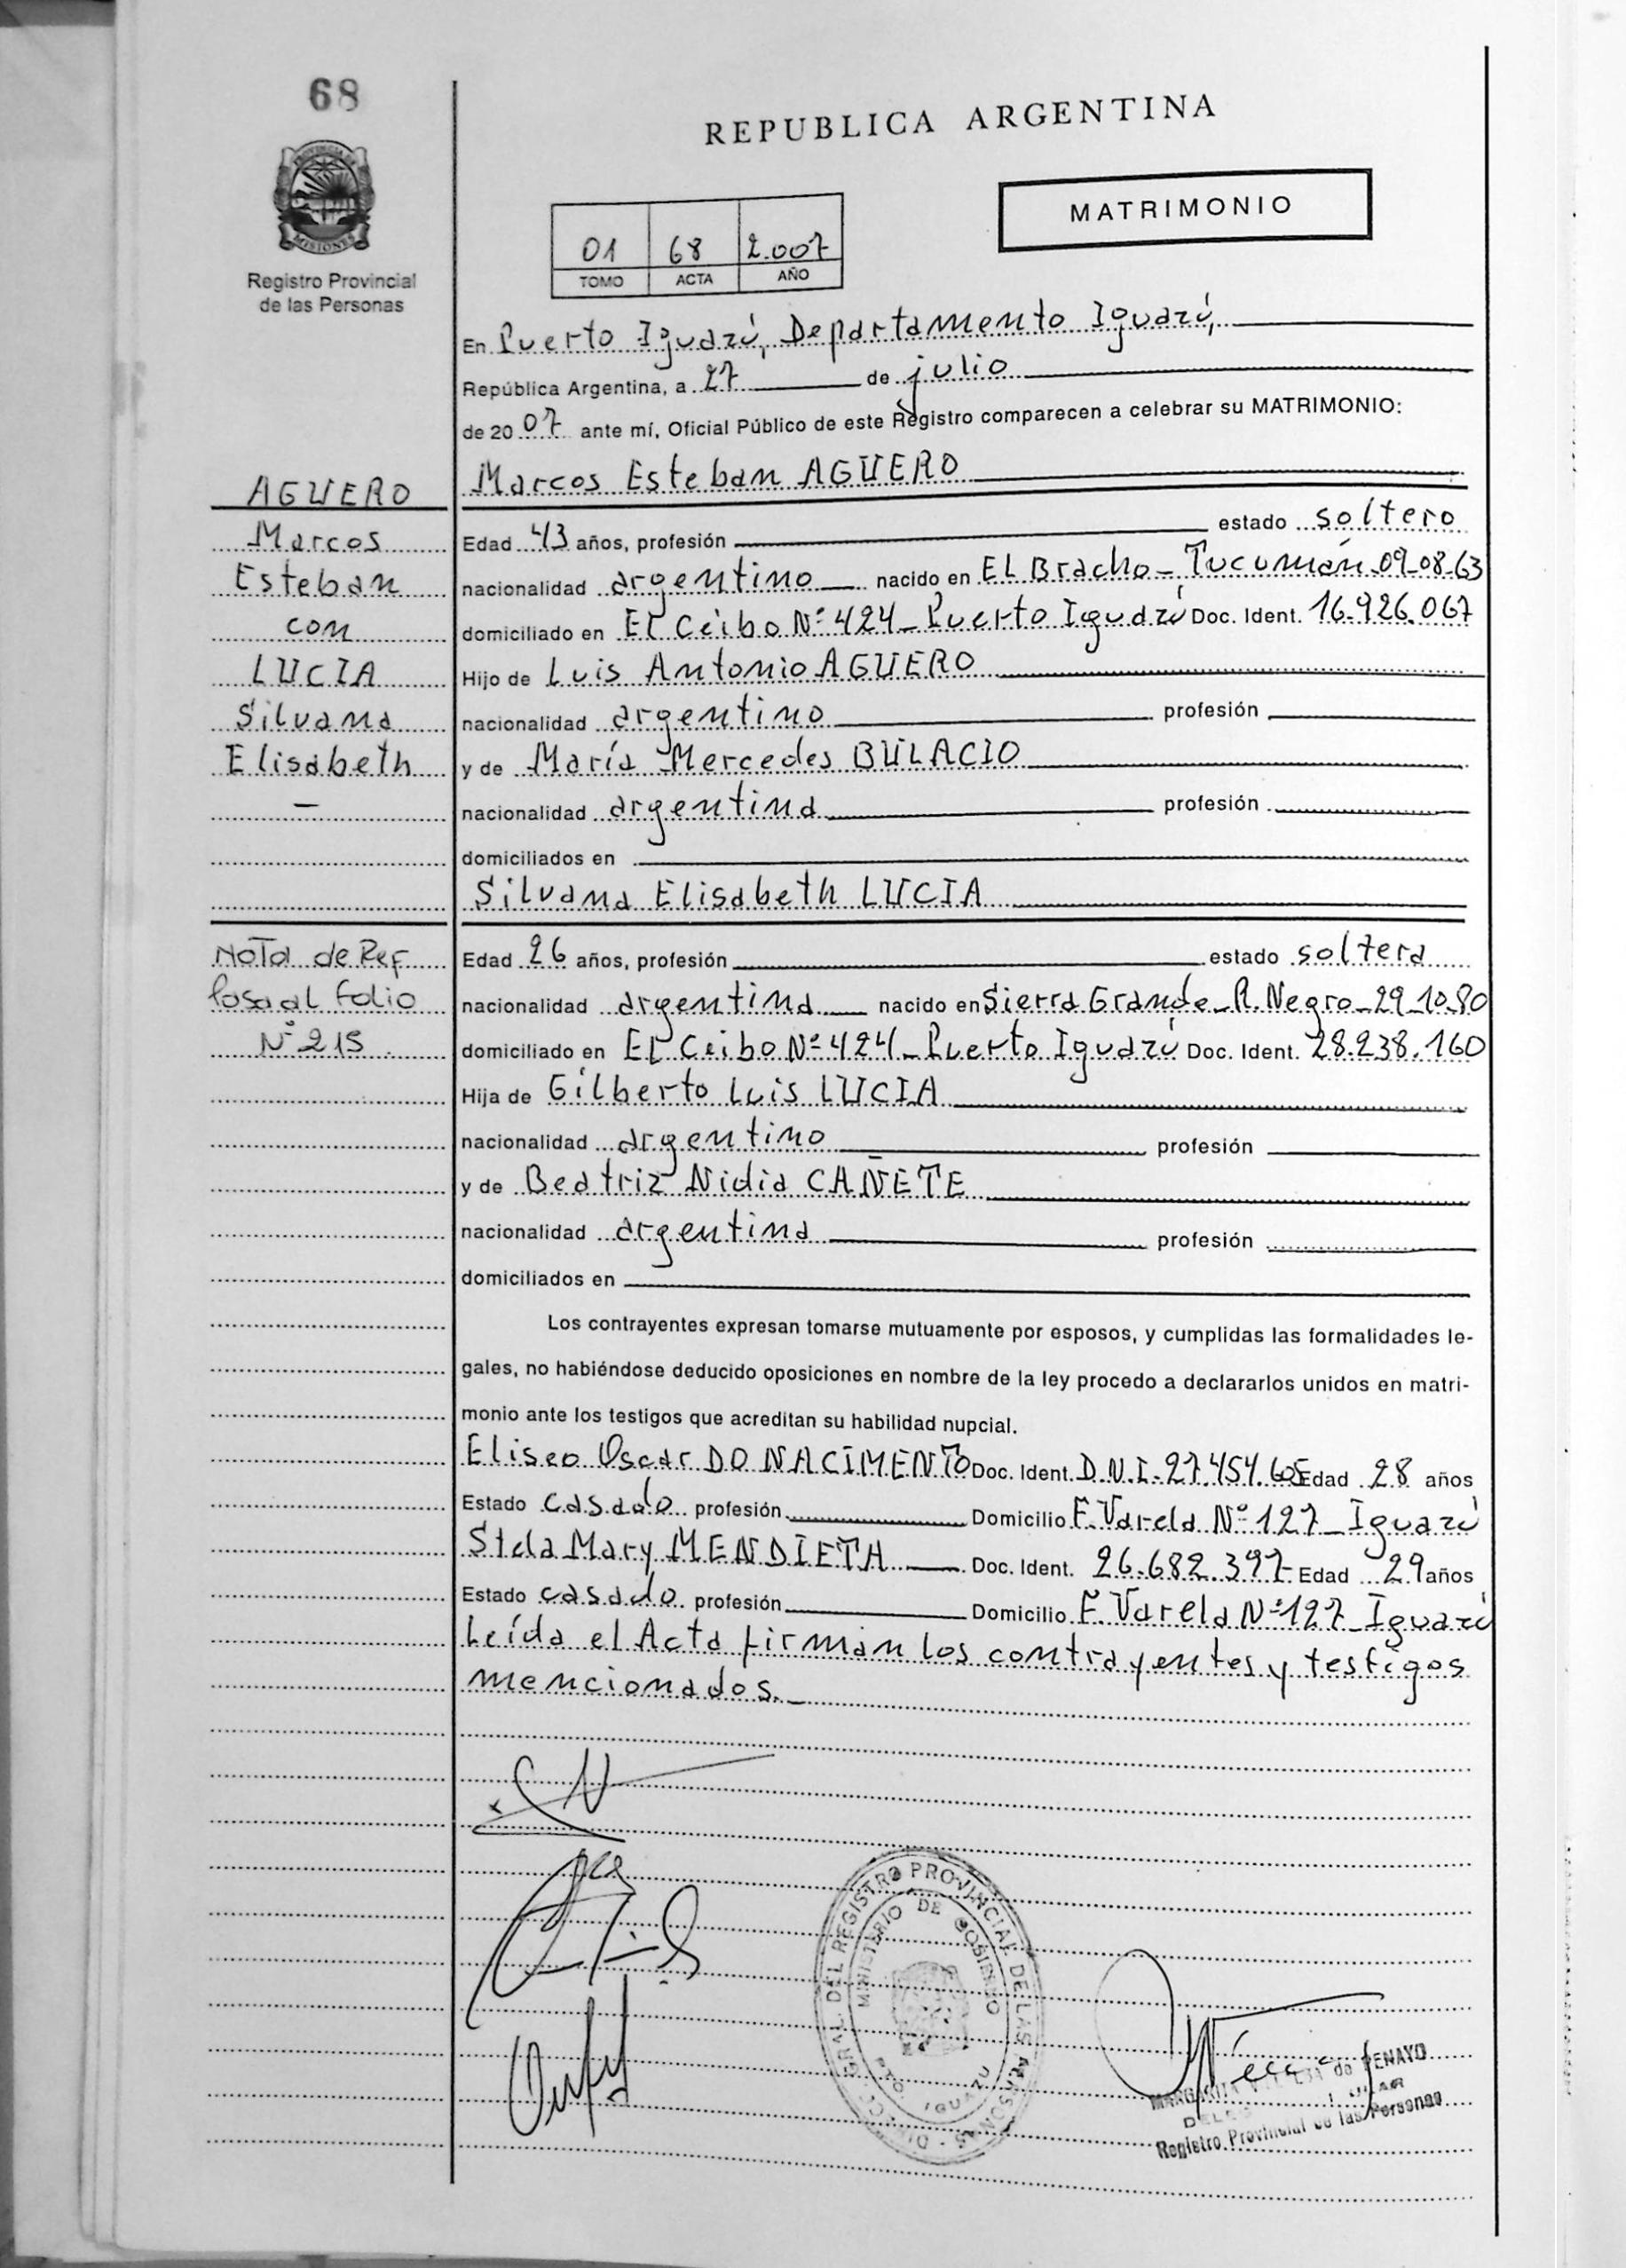 68
REPUBLICA ARGENTINA
PROVINCIA DE
MISIONES
Registro Provincial
de las Personas
MATRIMONIO
01 68 2.007
TOMO ACTA AÑO
En Puerto Iguazú, Departamento Iguazú,
República Argentina, a 27 de julio
de 2007 ante mí, Oficial Público de este Registro comparecen a celebrar su MATRIMONIO:
AGUERO
Marcos
Esteban
con
LUCIA
Silvana
Elisabeth
—
Marcos Esteban AGUERO
Edad 43 años, profesión estado soltero
nacionalidad argentino nacido en El Bracho - Tucumán 09-08-63
domiciliado en El Ceibo Nº 424 - Puerto Iguazú Doc. Ident. 16.926.067
Hijo de Luis Antonio AGUERO
nacionalidad argentino profesión
y de María Mercedes BULACIO
nacionalidad argentina profesión
domiciliados en
Silvana Elisabeth LUCIA
Nota de Ref
Pasa al Folio
Nº 215
Edad 26 años, profesión estado soltera
nacionalidad argentina nacido en Sierra Grande - R. Negro - 29-10-80
domiciliado en El Ceibo Nº 424 - Puerto Iguazú Doc. Ident. 28.238.160
Hija de Gilberto Luis LUCIA
nacionalidad argentino profesión
y de Beatriz Nidia CAÑETE
nacionalidad argentina profesión
domiciliados en
Los contrayentes expresan tomarse mutuamente por esposos, y cumplidas las formalidades le-
gales, no habiéndose deducido oposiciones en nombre de la ley procedo a declararlos unidos en matri-
monio ante los testigos que acreditan su habilidad nupcial.
Eliseo Oscar DO NACIMENTO Doc. Ident. D.N.I. 27.454.605 Edad 28 años
Estado casado profesión Domicilio F. Varela Nº 127 - Iguazú
Stela Mary MENDIETA Doc. Ident. 26.682.397 Edad 29 años
Estado casado profesión Domicilio F. Varela Nº 127 - Iguazú
Leída el Acta firman los contrayentes y testigos
mencionados.-
GRAL. DEL REGISTRO PROVINCIAL DE LAS PERSONAS
MINISTERIO DE GOBIERNO
PTO. IGUAZU
MARGARITA de PENAYO
Registro Provincial de las Personas